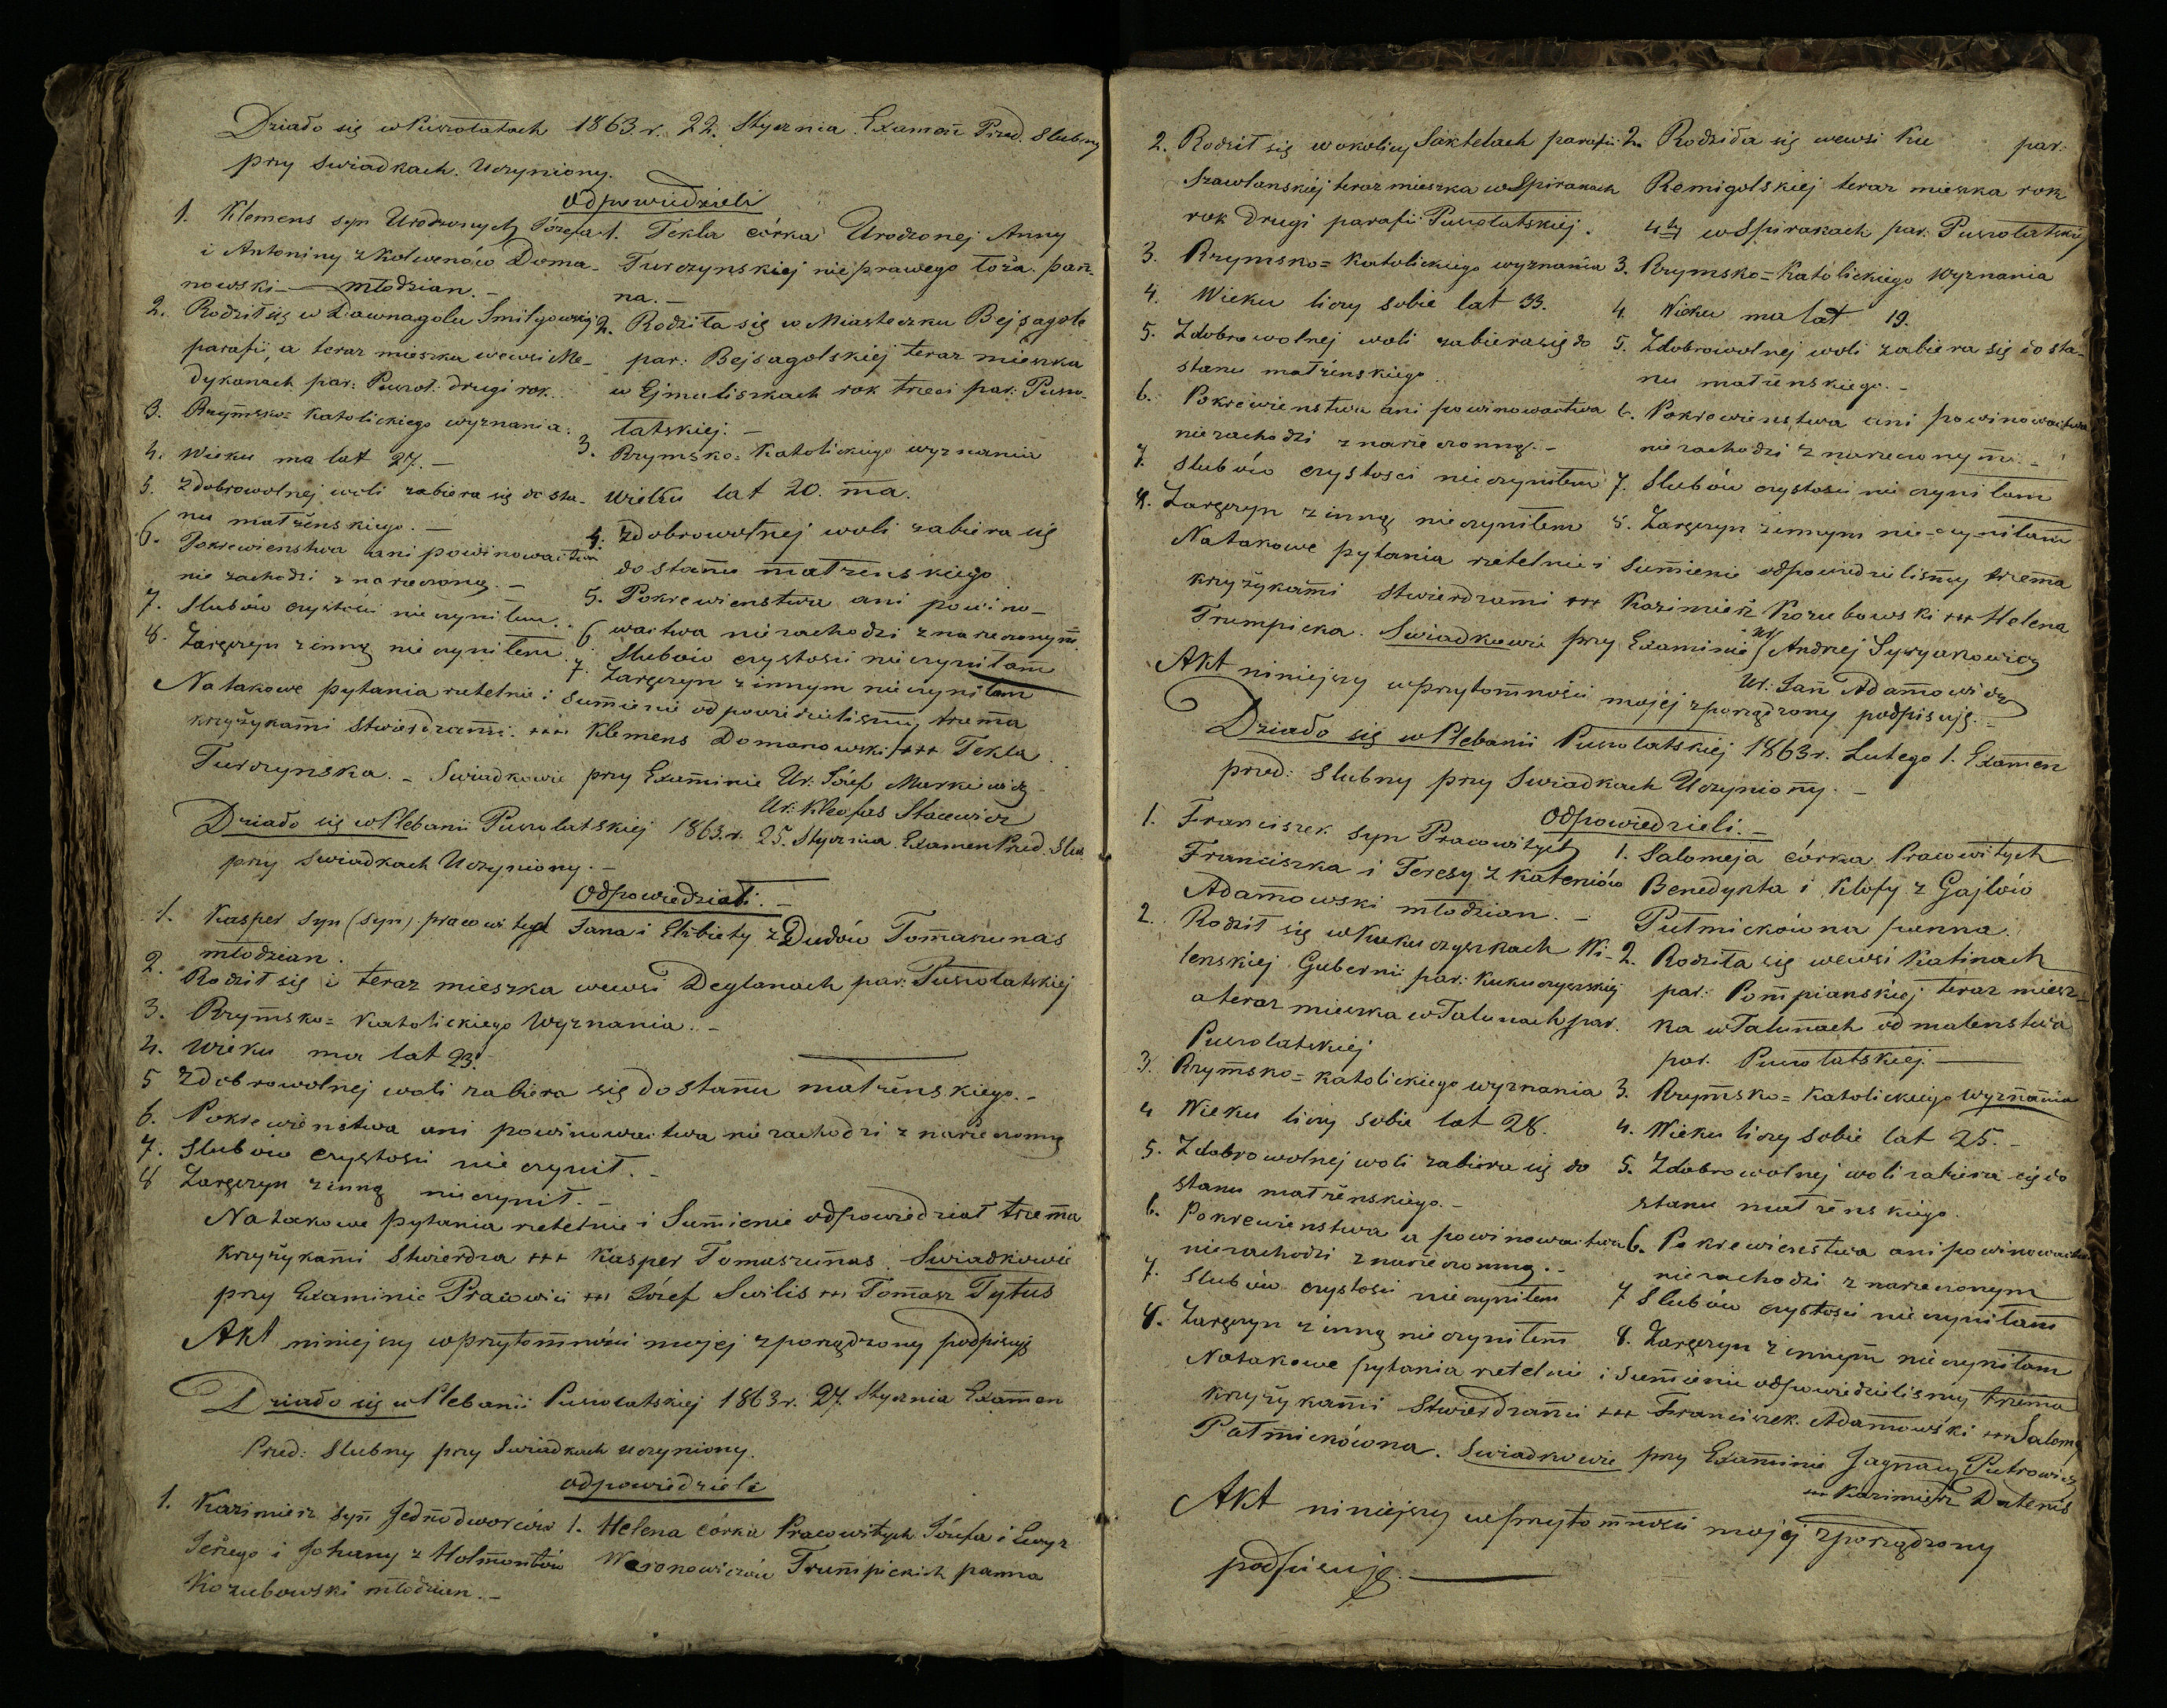 Działo się w Puszołatach 1863 r. 22. Stycznia. Examen Przed. Slubny
przy Swiadkach. Uczyniony.
Odpowiedzieli
1. Klemens syn Urodzonych Józefa
i Antoniny z Kolwenów Doma-
nowski — młodzian. -
2. Rodził się w Dawnagolu Smilgowskiej
parafii, a teraz mieszka wewsi Me-
dykanach par: Puszoł: drugi rok..
3. Rzymsko= Katolickiego wyznania.
4. Wieku ma lat 27. —
5. Zdobrowolnej woli zabiera się do sta-
nu małżenskiego. —
6. Pokrewienstwa ani powinowactwa
nie zachodzi z narzeczoną. —
7. Slubów czystości nie czyniłem..
8. Zaręczyn z inną nie czyniłem.
1. Tekla córka Urodzonej Anny
Turczynskiej nieprawego łoża. pan-
na. —
2. Rodziła się w Miasteczku Bejsagole
par: Bejsagolskiej teraz mieszka
w Ejmuliszkach rok trzeci par: Puszo-
łatskiej. —
3. Rzymsko= Katolickiego wyznania
Wieku lat 20. ma.
4. Zdobrowolnej woli zabiera się
do stanu małżenskiego
5. Pokrewienstwa ani powino-
6 wactwa nie zachodzi z narzeczonym.
Slubów czystości nie czyniłam
7. Zaręczyn z innym nie czyniłam
Na takowe pytania rzetelnie i Sumienie odpowiedzieliśmy trzema
krzyżykami Stwierdzami. +++ Klemens Domanowski +++ Tekla
Turczynska. - Swiadkowie przy Examinie Ur. Józef Markiewicz
Ur. Kleofas Stacewicz
Działo się w Plebanii Puszołatskiej 1863. r. 25. Stycznia Examen Przed. Slub
przy Swiadkach Uczyniony. —
Odpowiedziali. -
1. Kasper Syn (Syn) pracowitych Jana i Elżbiety z Dudów Tomaszunas
młodzian.
2. Rodził się i teraz mieszka wewsi Deglanach par: Puszołatskiej
3. Rzymsko= Katolickiego Wyznania. -
4. Wieku ma lat 23. -
5 Zdobrowolnej woli zabiera się do stanu małżenskiego. -
6. Pokrewienstwa ani powinowactwa nie zachodzi z narzeczoną
7. Slubów czystości nie czynił. -
8 Zaręczyn z inną nie czynił. -
Na takowe pytania rzetelnie i Sumienie odpowiedział trzema
krzyżykami Stwierdza +++ Kasper Tomaszunas. Swiadkowie
przy Examinie Pracowici +++ Józef Swilis +++ Tomasz Tytus
Akt niniejszy w przytomności mojej zporządzony podpisuję
Działo się w Plebanii Puszołatskiej 1863 r. 27. Stycznia Examen
Przed: Slubny przy Swiadkach uczyniony.
odpowiedzieli
1. Kazimierz syn Jednodworców
Jerzego i Johany z Holmontów
Kozubowski młodzian. -
1. Helena córka Pracowitych Józefa i Ewy z
Woronowiczów Trumpickich panna
2. Rodził się w okolicy Saktelach parafii
Szawlanskiej teraz mieszka w Spirakach
rok drugi parafii Puszołatskiej.
3. Rzymsko= Katolickiego wyznania
4. Wieku liczy sobie lat 33.
5. Zdobrowolnej woli zabiera się do
stanu małżenskiego.
6. Pokrewienstwa ani powinowactwa
nie zachodzi z narzeczoną. -
7. Slubów czystości nie czyniłem
8. Zaręczyn z inną nie czyniłem
2. Rodziła się wewsi Ku par:
Remigolskiej teraz mieszka rok
4ty w Spirakach par: Puszołatskiej
3. Rzymsko= Katolickiego Wyznania
4. Wieku ma lat 19.
5. Zdobrowolnej woli zabiera się do sta-
nu małżenskiego. -
6. Pokrewienstwa ani powinowactwa
nie zachodzi z narzeczonym. -
7. Slubów czystości nie czyniłam
8. Zaręczyn z innym nie czyniłam
Na takowe pytania rzetelnie i Sumienie odpowiedzieliśmy trzema
krzyżykami Stwierdzami +++ Kazimierz Kozubowski +++ Helena
Trumpicka. Swiadkowie przy Examinie Ur. Andrzej
Ur: Jan Adamowicz
Akt niniejszy w przytomności mojej zporządzony podpisuję. -
Działo się w Plebanii Puszołatskiej 1863 r. Lutego 1. Examen
przed: Slubny przy Swiadkach Uczyniony. -
Odpowiedzieli. -
1. Franciszek syn Pracowitych
Franciszka i Teresy z Kateniów
Adamowski młodzian. -
2. Rodził się w Kukuczyszkach Wi-
lenskiej Gubernii par: Kukuczyszskiej
a teraz mieszka w Talunach par.
Puszołatskiej
3. Rzymsko= katolickiego wyznania
4 Wieku liczy sobie lat 28.
5. Zdobrowolnej woli zabiera się do
stanu małżenskiego. -
6. Pokrewienstwa a powinowactwa
nie zachodzi z narzeczoną. -
7. Slubów czystości nie czyniłem
8. Zaręczyn z inną nie czyniłem
1. Salomeja córka Pracowitych
Benedykta i Klofy z Gajlów
Putmickówna panna.
2. Rodziła się wewsi Katinach
par: Pompianskiej teraz miesz-
ka w Talunach od malenstwa
par. Puszołatskiej. —
3. Rzymsko= Katolickiego wyznania
4. Wieku liczy sobie lat 25. -
5. Zdobrowolnej woli zabiera się do
stanu małżenskiego.
6. Pokrewienstwa ani powinowactwa
nie zachodzi z narzeczonym
7 Slubów czystości nie czyniłam
8. Zaręczyn z innym nie czyniłam
Na takowe pytania rzetelnie i Sumienie odpowiedzieliśmy trzema
krzyżykami Stwierdzami +++ Franciszek Adamowski +++ Salomeja
Patmickówna. Swiadkowie przy Examinie Jgnacy Putrowicz
+++ Kazimierz Datenis
Akt niniejszy w przytomności mojej zporządzony
podpisuję. —